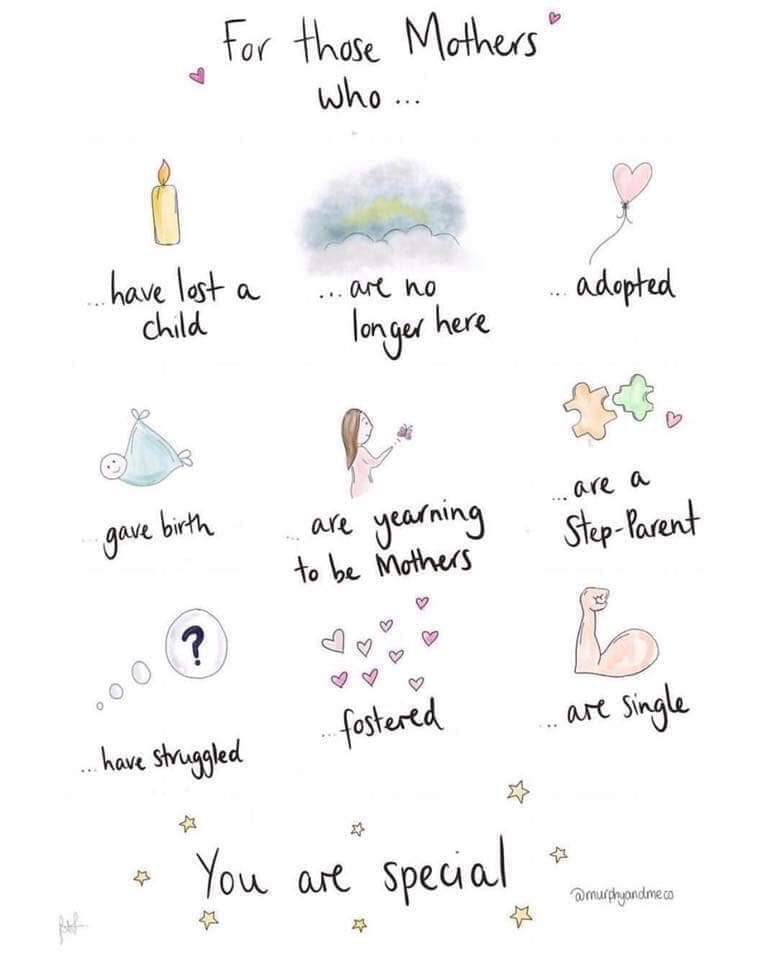 For those Mothers
who ...
... have lost a
child
... are no
longer here
... adopted
... gave birth
... are yearning
to be Mothers
... are a
Step-Parent
?
... have struggled
... fostered
... are single
You are special
@murphyandmeco